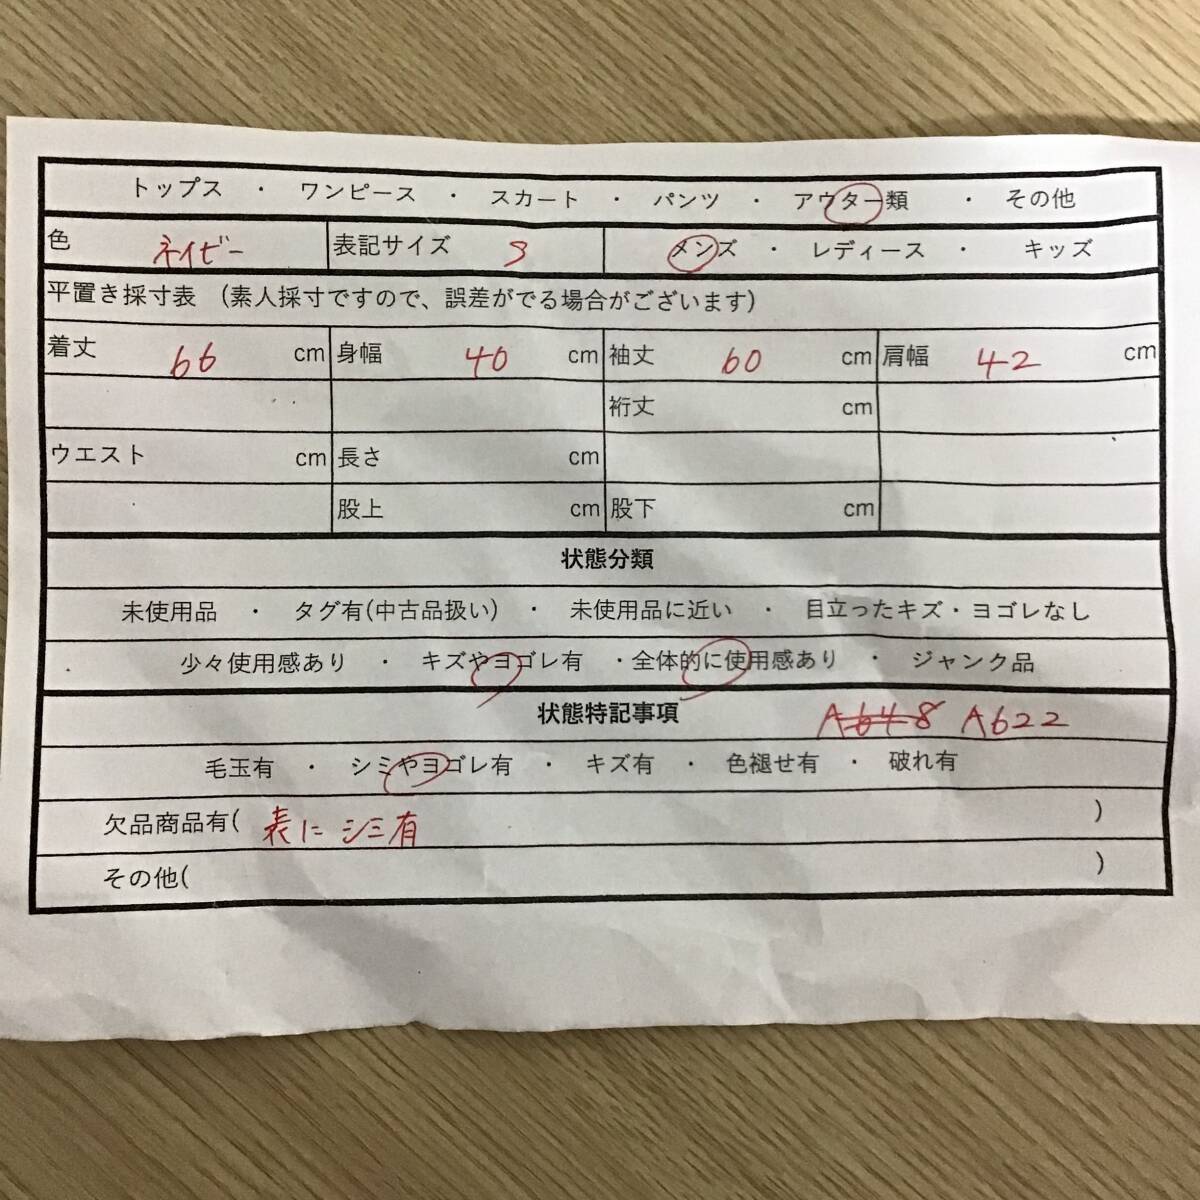 トップス ・ ワンピース ・ スカート ・ パンツ ・ アウター類 ・ その他
色 ネイビー 表記サイズ S メンズ ・ レディース ・ キッズ
平置き採寸表 (素人採寸ですので、誤差がでる場合がございます)
着丈 66 cm 身幅 40 cm 袖丈 60 cm 肩幅 42 cm
裄丈 cm
ウエスト cm 長さ cm
股上 cm 股下 cm
状態分類
未使用品 ・ タグ有(中古品扱い) ・ 未使用品に近い ・ 目立ったキズ・ヨゴレなし
少々使用感あり ・ キズやヨゴレ有 ・全体的に使用感あり ・ ジャンク品
状態特記事項 A648 A622
毛玉有 ・ シミやヨゴレ有 ・ キズ有 ・ 色褪せ有 ・ 破れ有
欠品商品有( 表にシミ有 )
その他( )